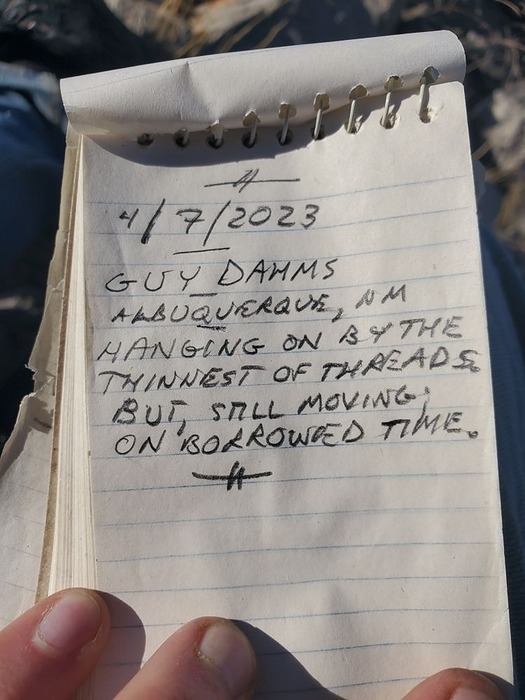 4/7/2023
GUY DAHMS
ALBUQUERQUE, NM
HANGING ON BY THE
THINNEST OF THREADS.
BUT, STILL MOVING;
ON BORROWED TIME.